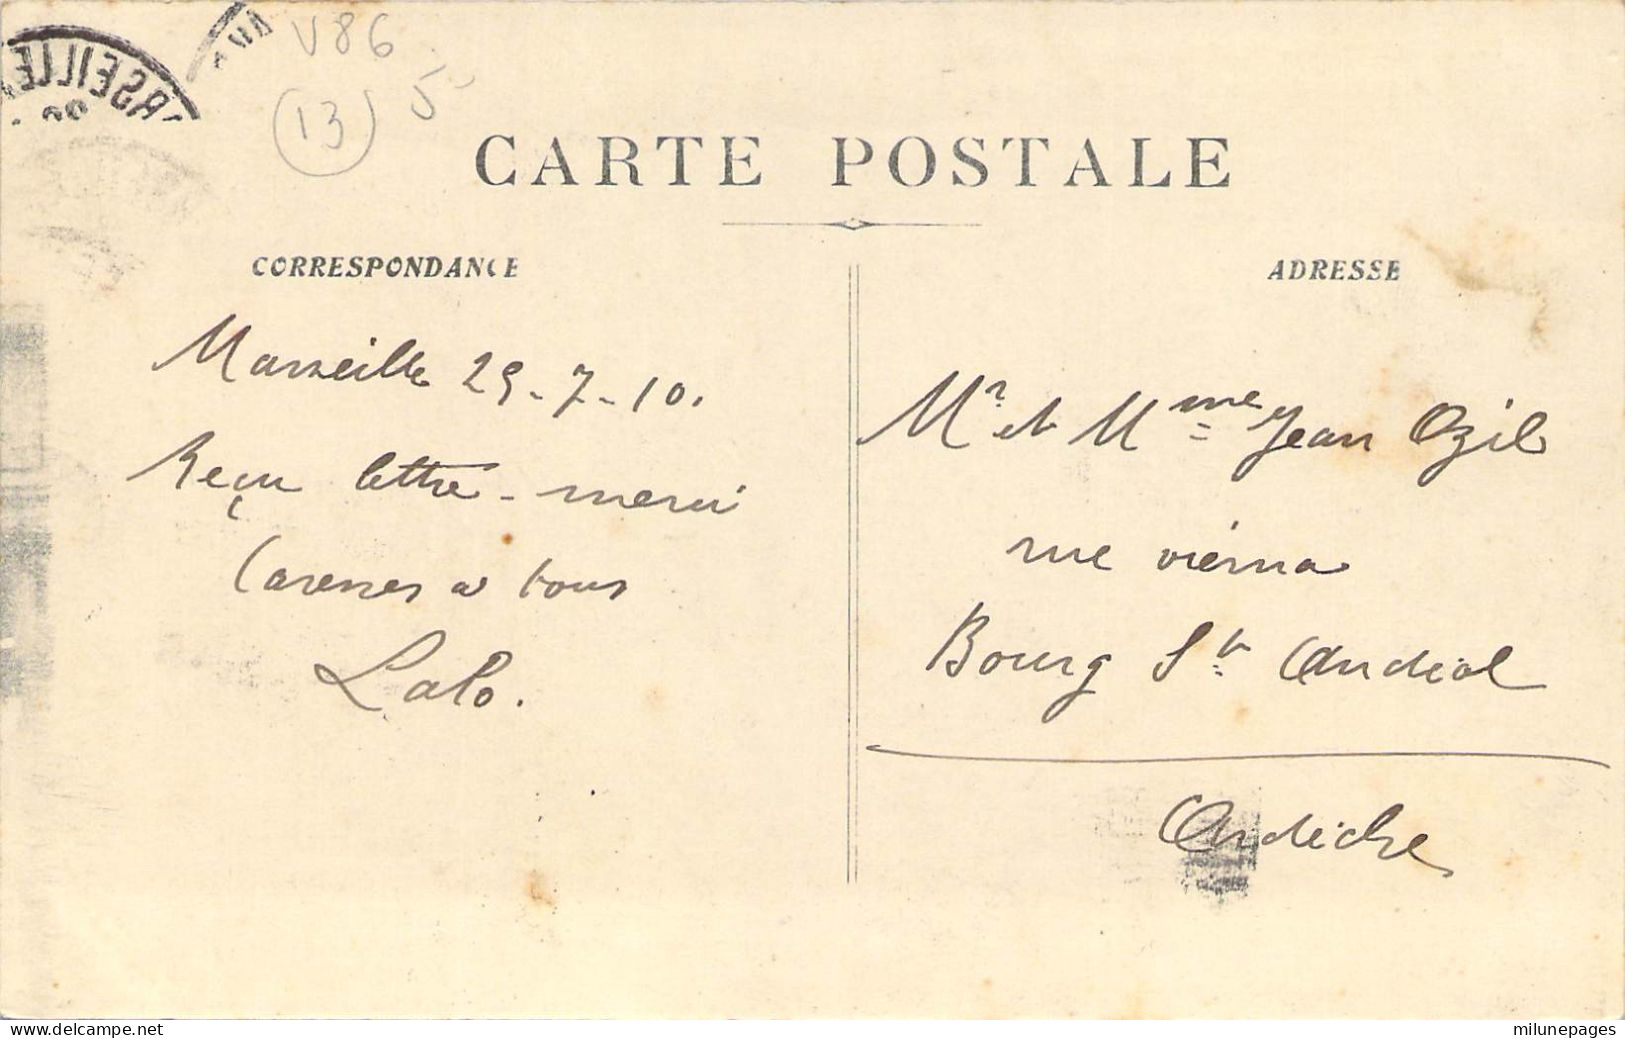 V86
13
MARSEILLE
CARTE POSTALE
CORRESPONDANCE
ADRESSE
Marseille 29-7-10.
Reçu lettre - merci
Caresses à tous
LaLo.
Mr et Mme Jean Ozil
rue vierna
Bourg St Andéol
Ardèche
www.delcampe.net
milunepages